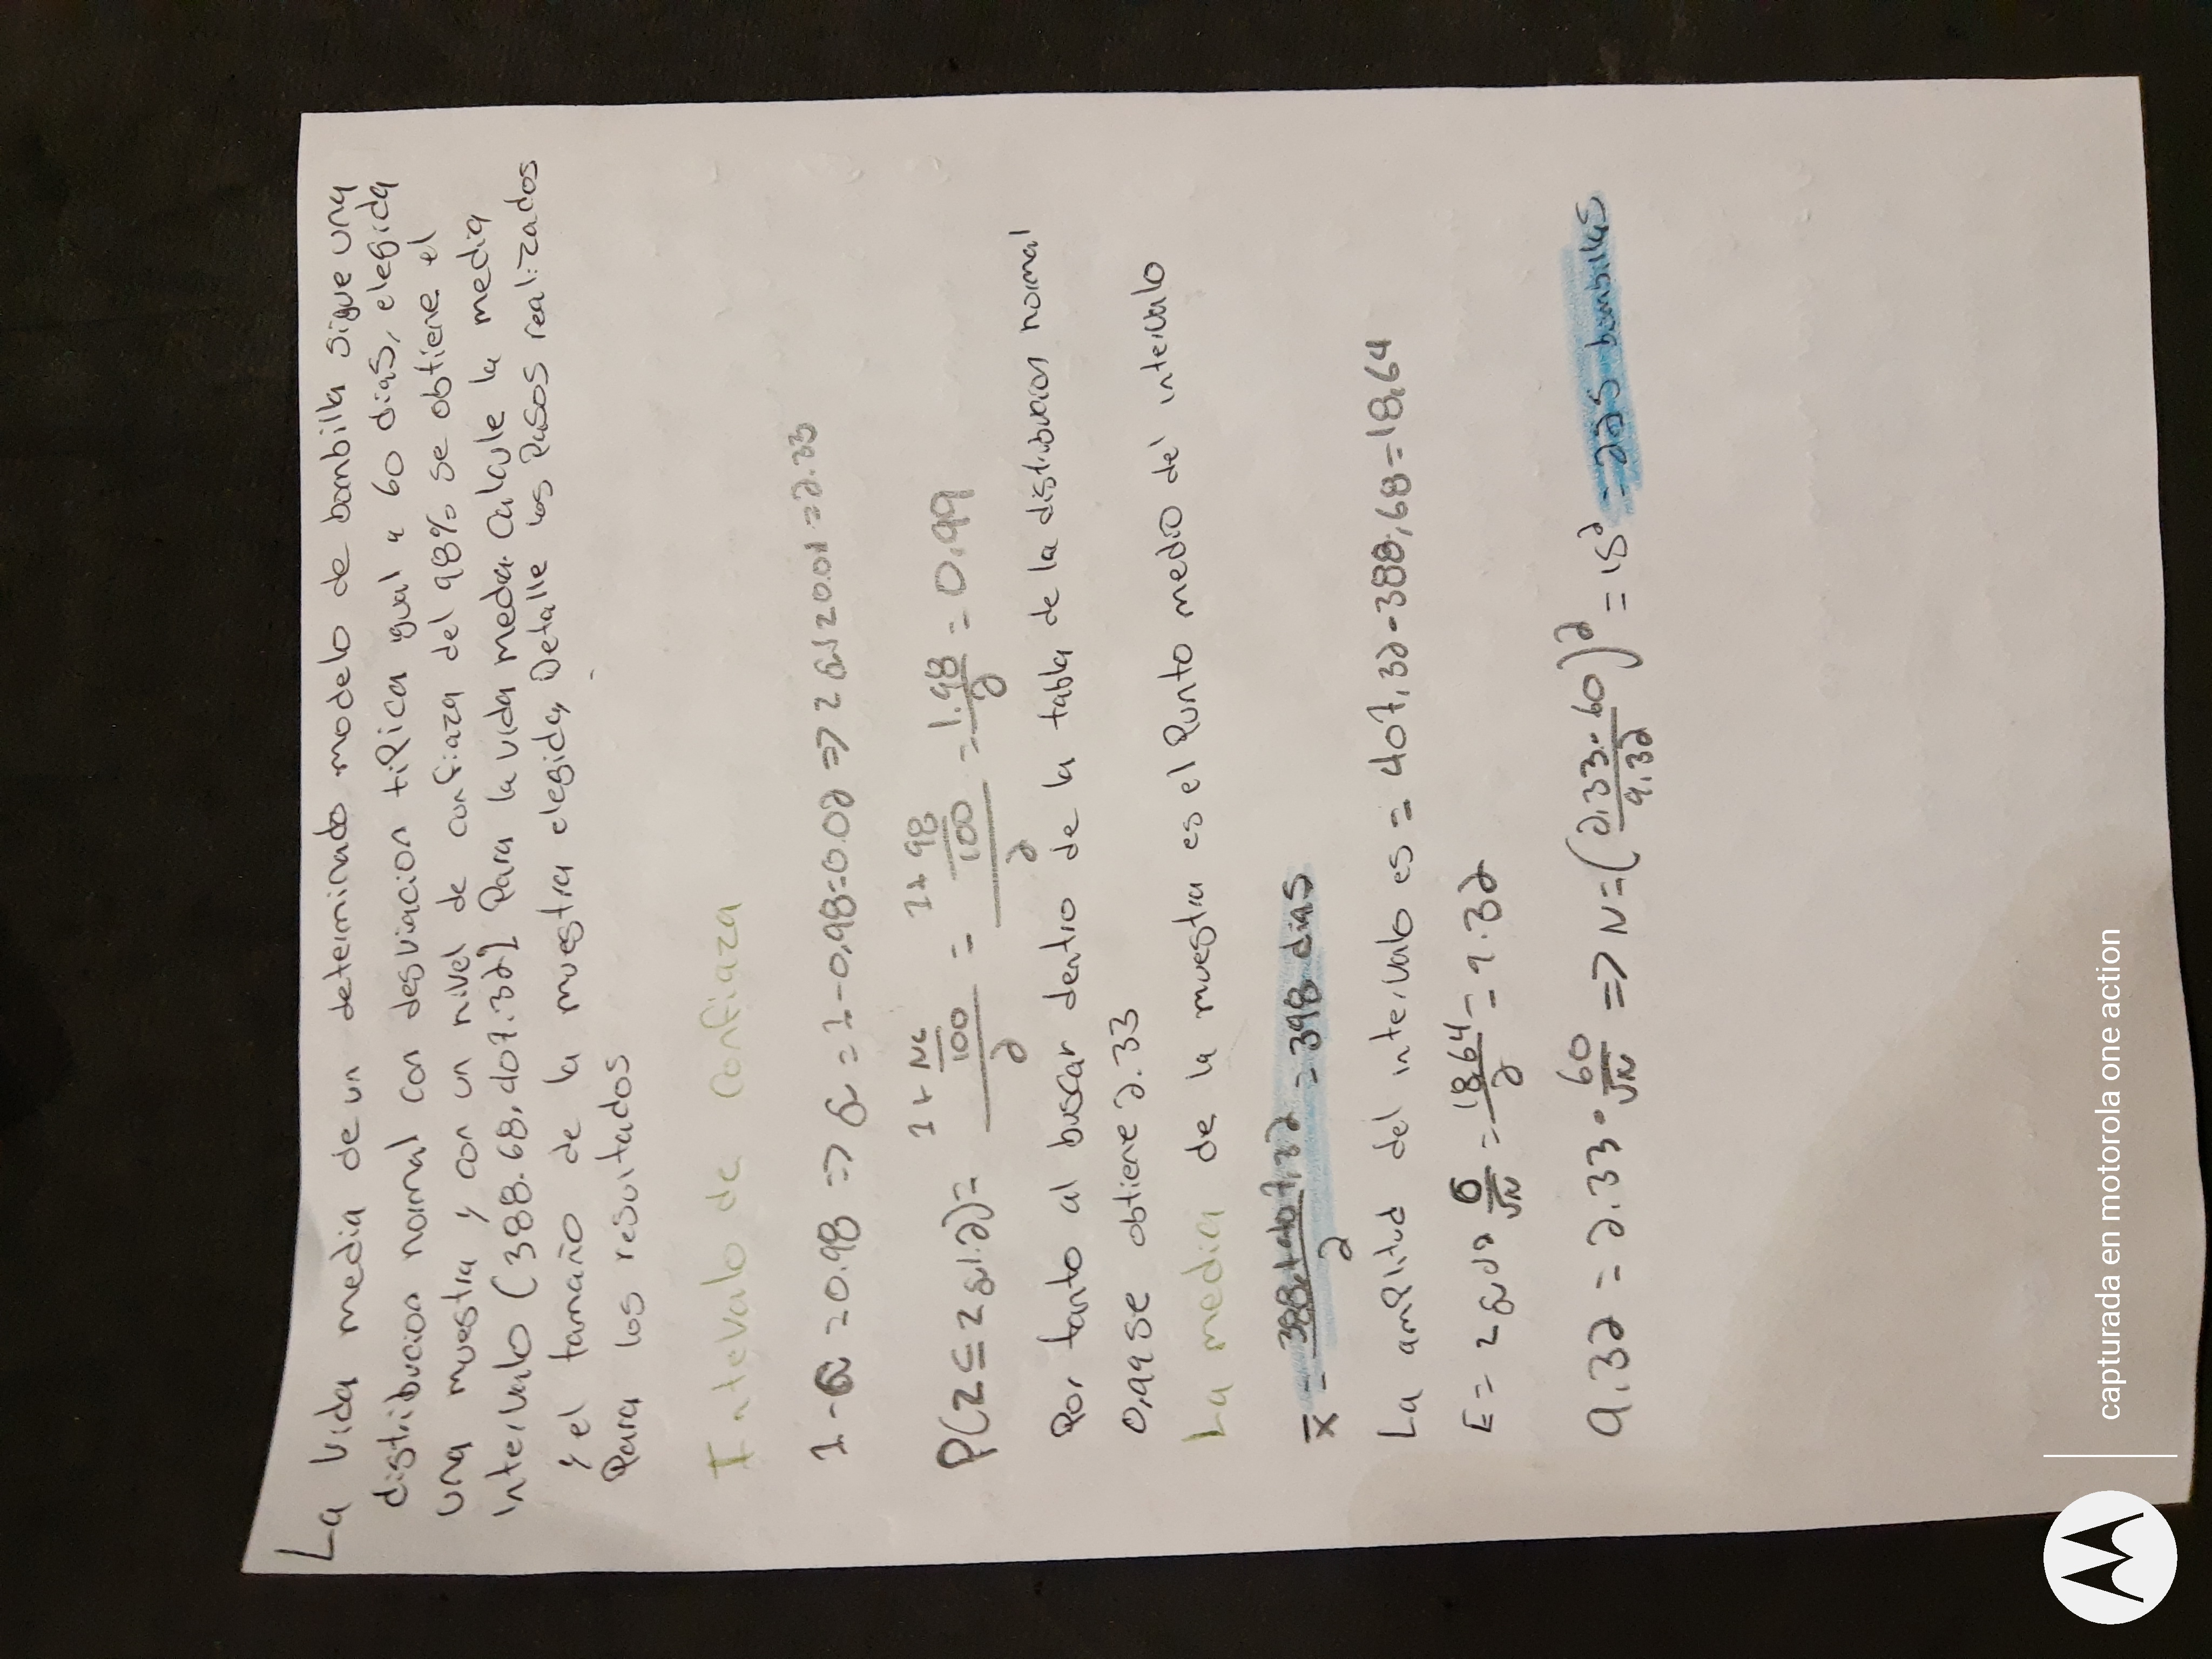 La vida media de un determinado modelo de bombilla sigue una
distribucion normal con desviacion tipica igual a 60 dias, elegida
una muestra y con un nivel de confiaza del 98% se obtiene el
Intervalo (388.68, 407.32] Para la vida media. Calcule la media
y el tamaño de la muestra elegida, Detalle los Pasos realizados
Para los resultados
Intevalo de Confiaza
1 - α = 0.98 => α = 1-0,98=0.02 => Z α/2 0.01 = 2.33
P(Z ≤ Z α/2) = (1 + NC/100)/2 = (1+ 98/100)/2 = 1.98/2 = 0.99
Por tanto al buscar dentro de la tabla de la distribucion normal
0,99 se obtiene 2.33
La media de la muestra es el Punto medio del intervalo
x̄ = 388,+407,32/2 = 398 dias
La amplitud del intervalo es = 407,32-388,68=18,64
E = Z α/2 σ/√N = 18,64/2 = 9.32
9.32 = 2.33 · 60/√N => N = (2,33·60/9.32)² = 15² = 225 bombillas
capturada en motorola one action